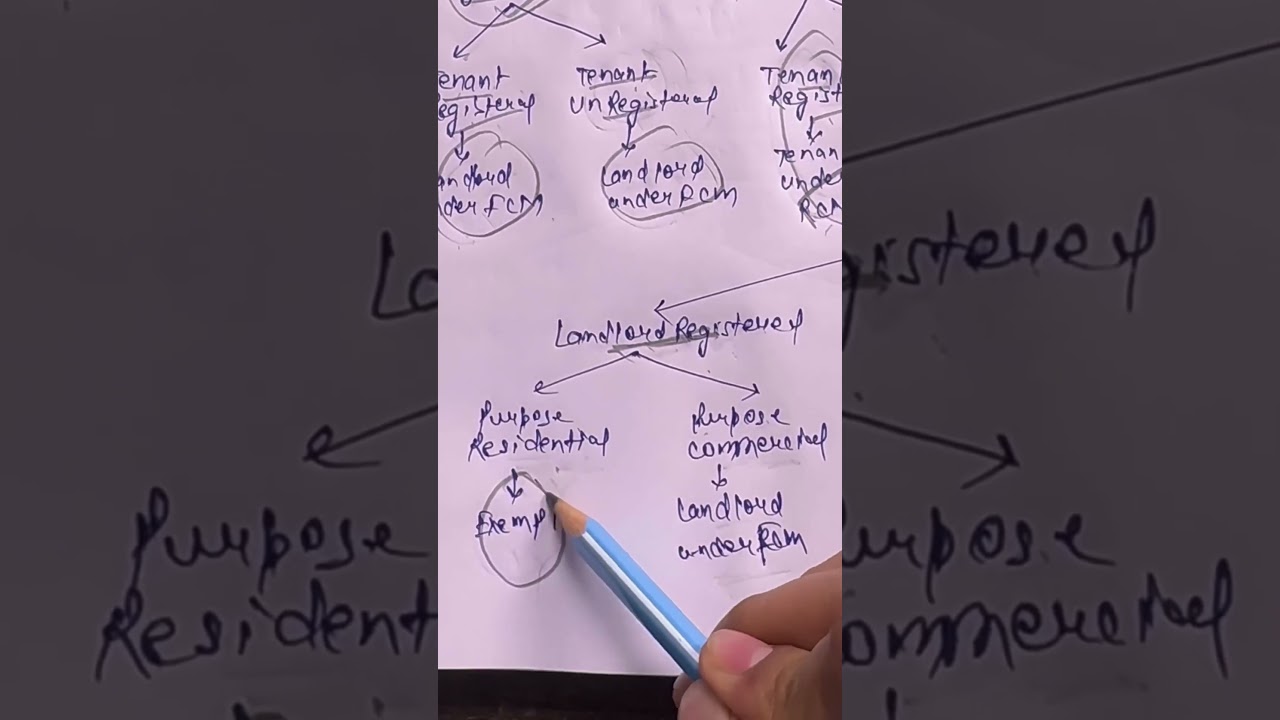 enant
Tenant
Tenan
egistered
UnRegistered
Regist
andlord
Landlord
Tenan
nder FCM
under RCM
unde
RCM
Landlord Registered
Purpose
Purpose
Residential
commercial
Exempt
Landlord
under RCM